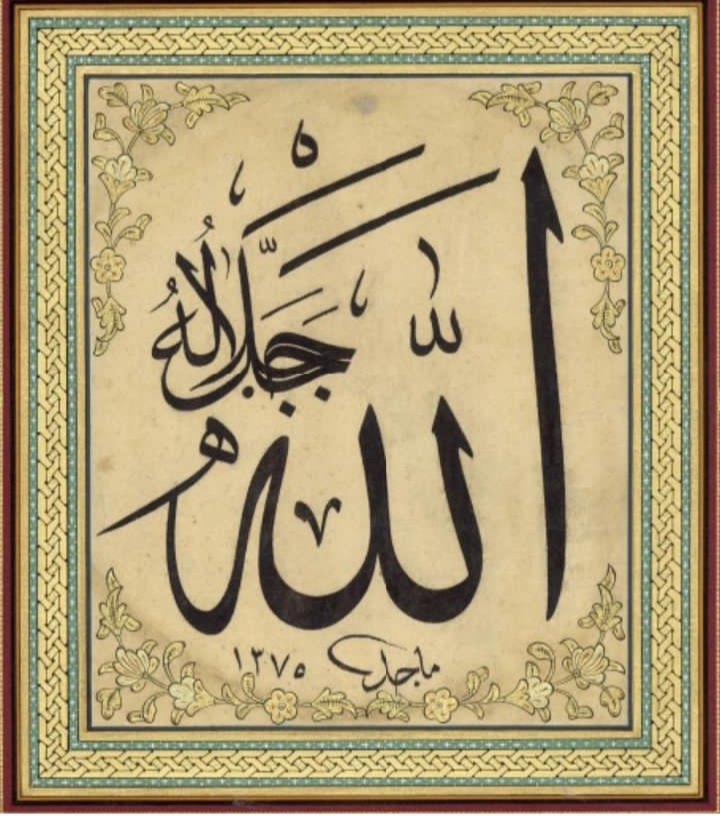 الله
جَلَّ جَلَالُهُ
ماجد ١٣٧٥